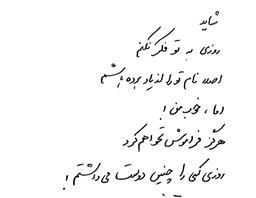 شاید
روزی به تو فکر نکنم
اصلا نام تو را از یاد برده باشم
اما ، خوب من !
هرگز فراموش نخواهم کرد
روزی کسی را چنین دوست می داشتم !